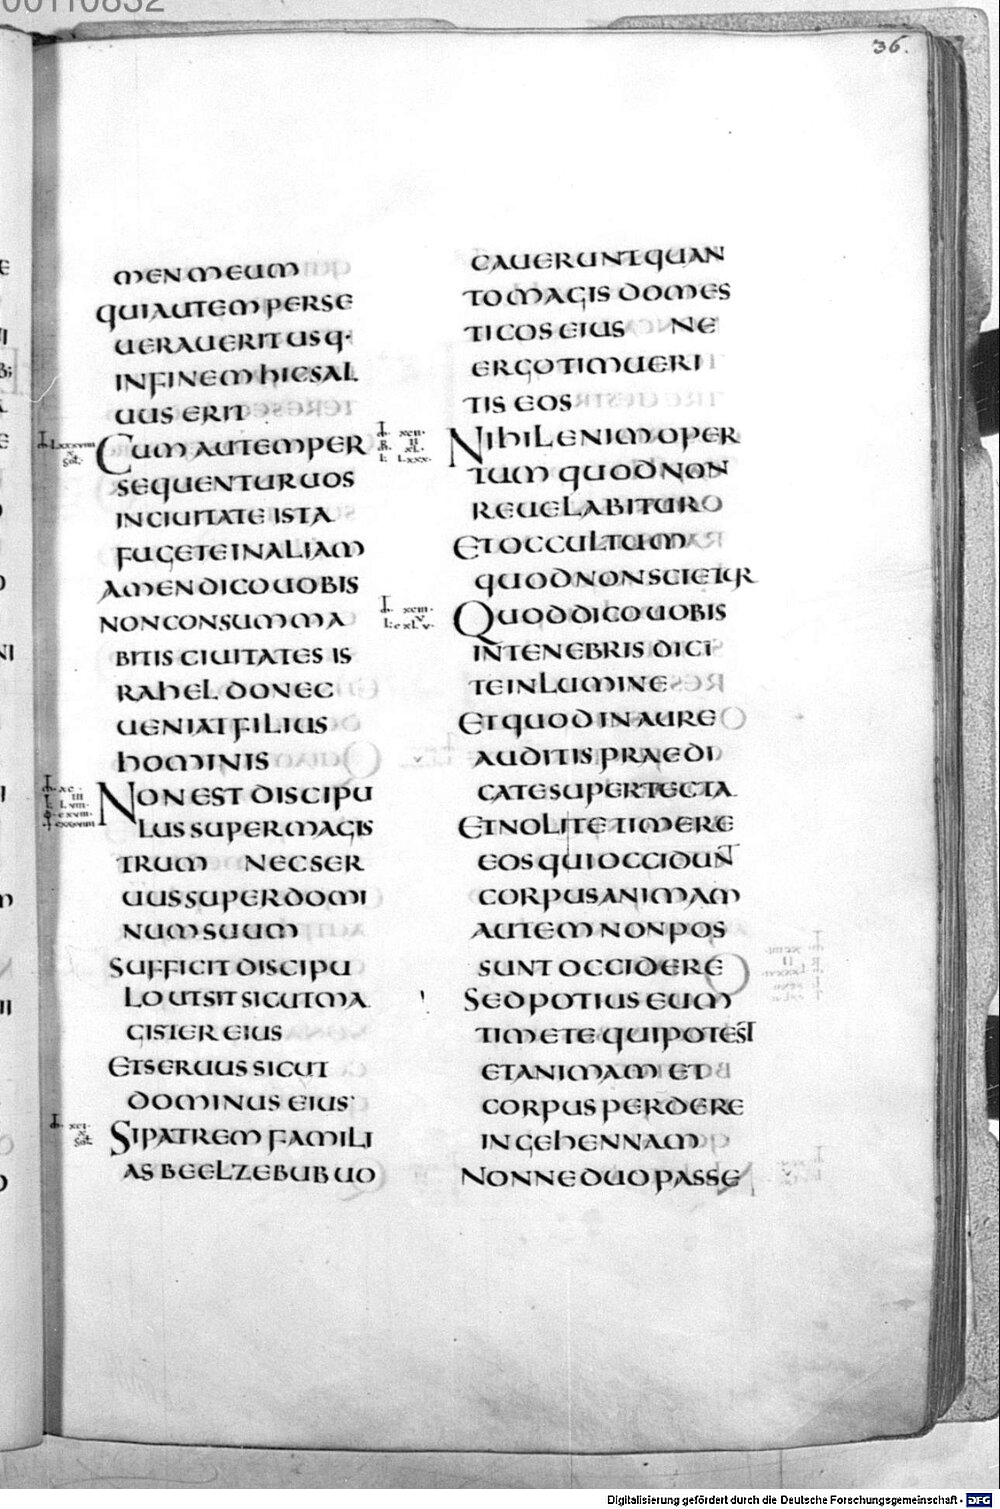 00110832
36.
MEN MEUM
QUI AUTEM PERSE
UERAUERIT USQ·
IN FINEM HIC SAL
UUS ERIT
CUM AUTEM PER
SEQUENTUR UOS
IN CIUITATE ISTA
FUGETE IN ALIAM
AMEN DICO UOBIS
NON CONSUMMA
BITIS CIUITATES IS
RAHEL DONEC
UENIAT FILIUS
HOMINIS
NON EST DISCIPU
LUS SUPER MAGIS
TRUM NEC SER
UUS SUPER DOMI
NUM SUUM
SUFFICIT DISCIPU
LO UT SIT SICUT MA
GISTER EIUS
ET SERUUS SICUT
DOMINUS EIUS
SI PATREM FAMILI
AS BEELZEBUB UO
CAUERUNT QUAN
TO MAGIS DOMES
TICOS EIUS NE
ERGO TIMUERI
TIS EOS
NIHIL ENIM OPER
TUM QUOD NON
REUELABITUR
ET OCCULTUM
QUOD NON SCIETUR
QUOD DICO UOBIS
IN TENEBRIS DICI
TE IN LUMINE
ET QUOD IN AURE
AUDITIS PRAEDI
CATE SUPER TECTA
ET NOLITE TIMERE
EOS QUI OCCIDUNT
CORPUS ANIMAM
AUTEM NON POS
SUNT OCCIDERE
SED POTIUS EUM
TIMETE QUI POTEST
ET ANIMAM ET
CORPUS PERDERE
IN GEHENNAM
NONNE DUO PASSE
Digitalisierung gefördert durch die Deutsche Forschungsgemeinschaft - DFG